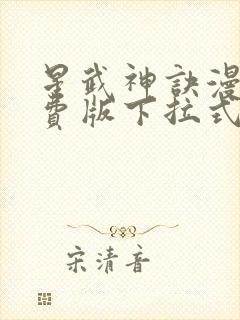 星武神訣漫
費版下拉式
宋清音